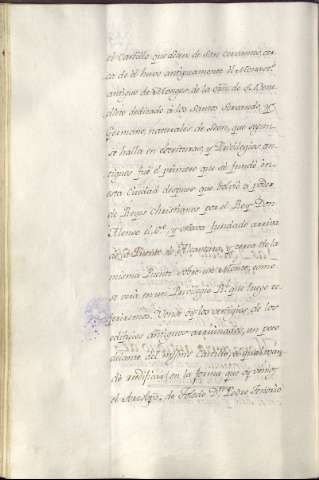 el Castillo que dizen de San Cervantes, cer
ca de él huvo antiguamente el Monastº
antiguo de Monges, de la Orñ de S. Bene
dicto dedicado á los Santos Servando, y
Germano, naturales de
se halla en escrituras, y Privilegios an
tiguos fue el primero que se fundó en
esta Ciudad despues que bolvió á poder
de Reyes Christianos por el Rey Don
Alonso el 6º. y estava fundado arriva
de la Puente de Alcantara, y cerca de la
misma Puente sobre un Monte, como
se verá en un Privilegio Rl. que luego re
feriremos. Vense oy los vestigios, de los
edificios antiguos arruinados, un poco
delante del mismo Castillo, el qual man
dó redificar en la forma que oy vemos
el Arzobpo. de Toledo Dn. Pedro Tenorio